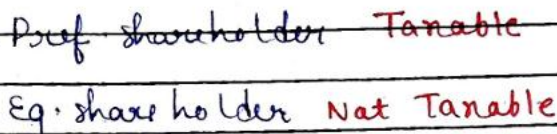 Pref. shareholder Taxable
Eq. share holder Not Taxable